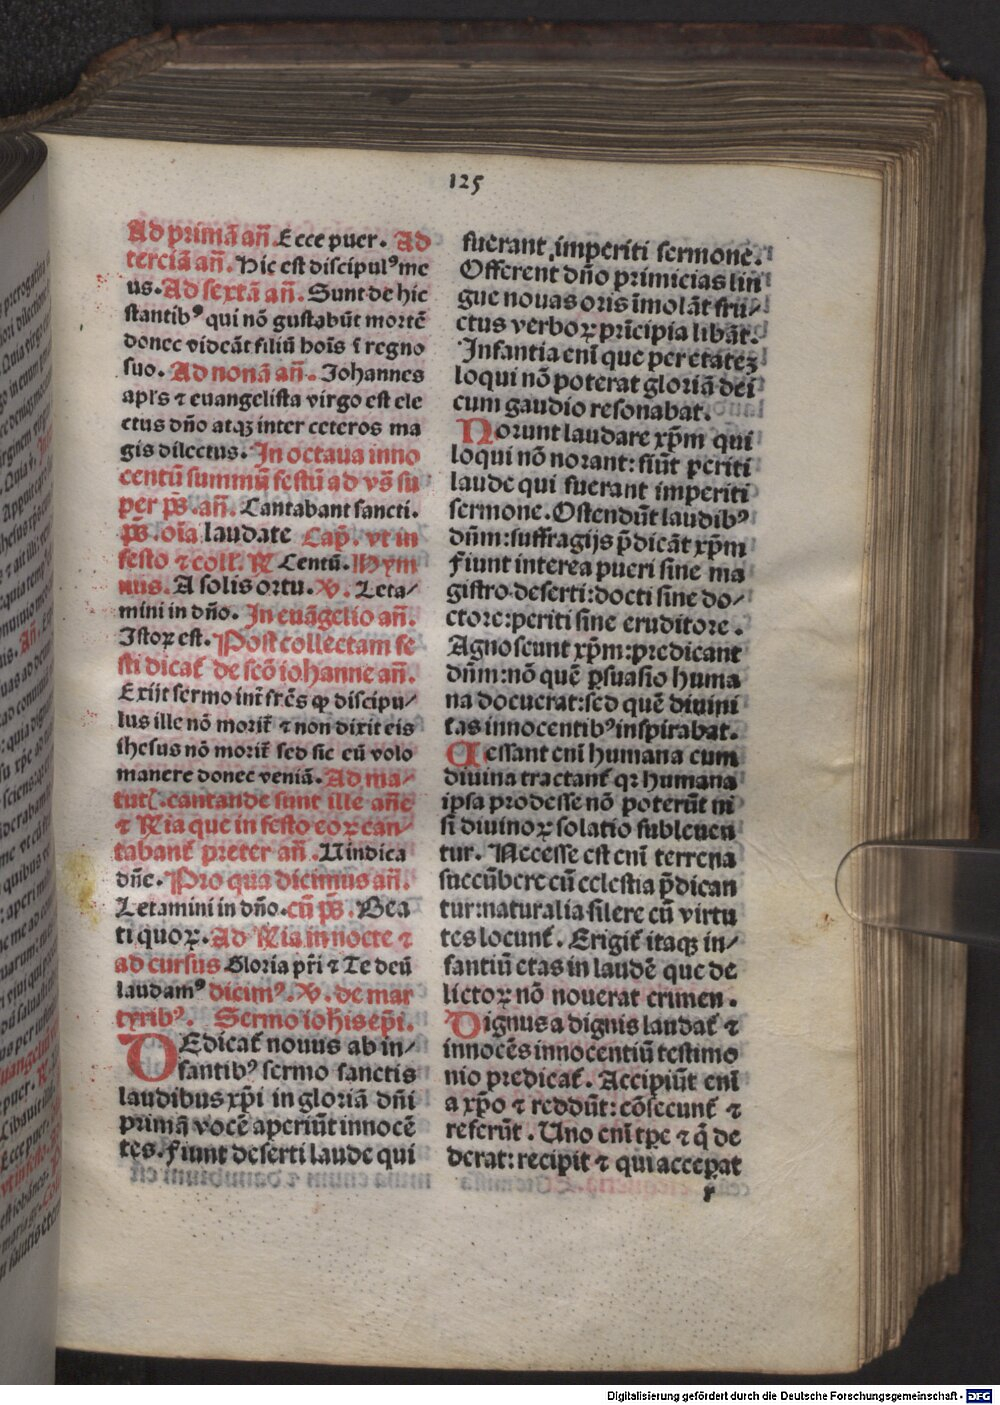 125
Ad primā añ. Ecce puer. Ad
terciā añ. Hic est discipulꝰ me
us. Ad sextā añ. Sunt de hic
stantibꝰ qui nō gustabūt mortē
donec videāt filiū hoīs ī regno
suo. Ad nonā añ. Johannes
apl's ⁊ euangelista virgo est ele
ctus dño atqꝫ inter ceteros ma
gis dilectus. In octaua inno
centū summū festū ad vs̄ su
per ps̄. añ. Cantabant sancti.
ps̄. oīa laudate Cap̄. vt in
festo ⁊ coll'. ℟ Centū. Hym
nus. A solis ortu. ℣. Leta⸗
mini in dño. In euāgelio añ.
Istoꝝ est. Post collectam fe
sti dicat̄ de scō iohanne añ.
Exijt sermo int̄ fr̄es ꝙ discipu⸗
lus ille nō morit̄ ⁊ non dixit eis
ihesus nō morit̄ sed sic eū volo
manere donec veniā. Ad ma⸗
tut̄. cantande sunt ille añe
⁊ ℟ia que in festo eoꝝ can⸗
tabant̄ preter añ. Uindica
dñe. Pro qua dicimus añ.
Letamini in dño. cū ps̄. Bea
ti quoꝝ. Ad ℟ia in nocte ⁊
ad cursus Gloria pr̄i ⁊ Te deū
laudamꝰ dicimꝰ. ℣. de mar
tyribꝰ. Sermo iohis ep̄i.
DEdicat̄ nouus ab in⸗
fantibꝰ sermo sanctis
laudibus xp̄i in gloriā dñi
primā vocē aperiūt innocē
tes. Fiunt deserti laude qui
fuerant imperiti sermone.
Offerent dño primicias lin
gue nouas oris īmolāt fru⸗
ctus verboꝝ pr̄incipia libāt.
Infantia enī que per etatēꝫ
loqui nō poterat gloriā dei
cum gaudio resonabat.
Norunt laudare xp̄m qui
loqui nō norant: siūt periti
laude qui fuerant imperiti
sermone. Ostendūt laudibꝰ
dñm: suffragijs p̄dicāt xp̄m
Fiunt interea pueri sine ma
gistro deserti: docti sine do⸗
ctore: periti sine eruditore.
Agnoscunt xp̄m: predicant
dñm: nō quē ꝑsuasio huma
na docuerat: sed quē diuini
tas innocentibꝰ inspirabat.
Cessant enī humana cum
diuina tractant̄ qꝛ humana
ipsa prodesse nō poterūt ni
si diuinoꝝ solatio subleuen
tur. Necesse est enī terrena
succūbere cū celestia p̄dican
tur: naturalia silere cū virtu
tes locunt̄. Erigit̄ itaqꝫ in⸗
fantiū etas in laudē que de
lictoꝝ nō nouerat crimen.
Dignus a dignis laudat̄ ⁊
innocēs innocentiū testimo
nio predicat̄. Accipiūt enī
a xp̄o ⁊ reddūt: cōsecunt̄ ⁊
referūt. Uno enī tp̄e ⁊ q̄ de
derat: recipit ⁊ qui acceꝑat
r
Digitalisierung gefördert durch die Deutsche Forschungsgemeinschaft - DFG